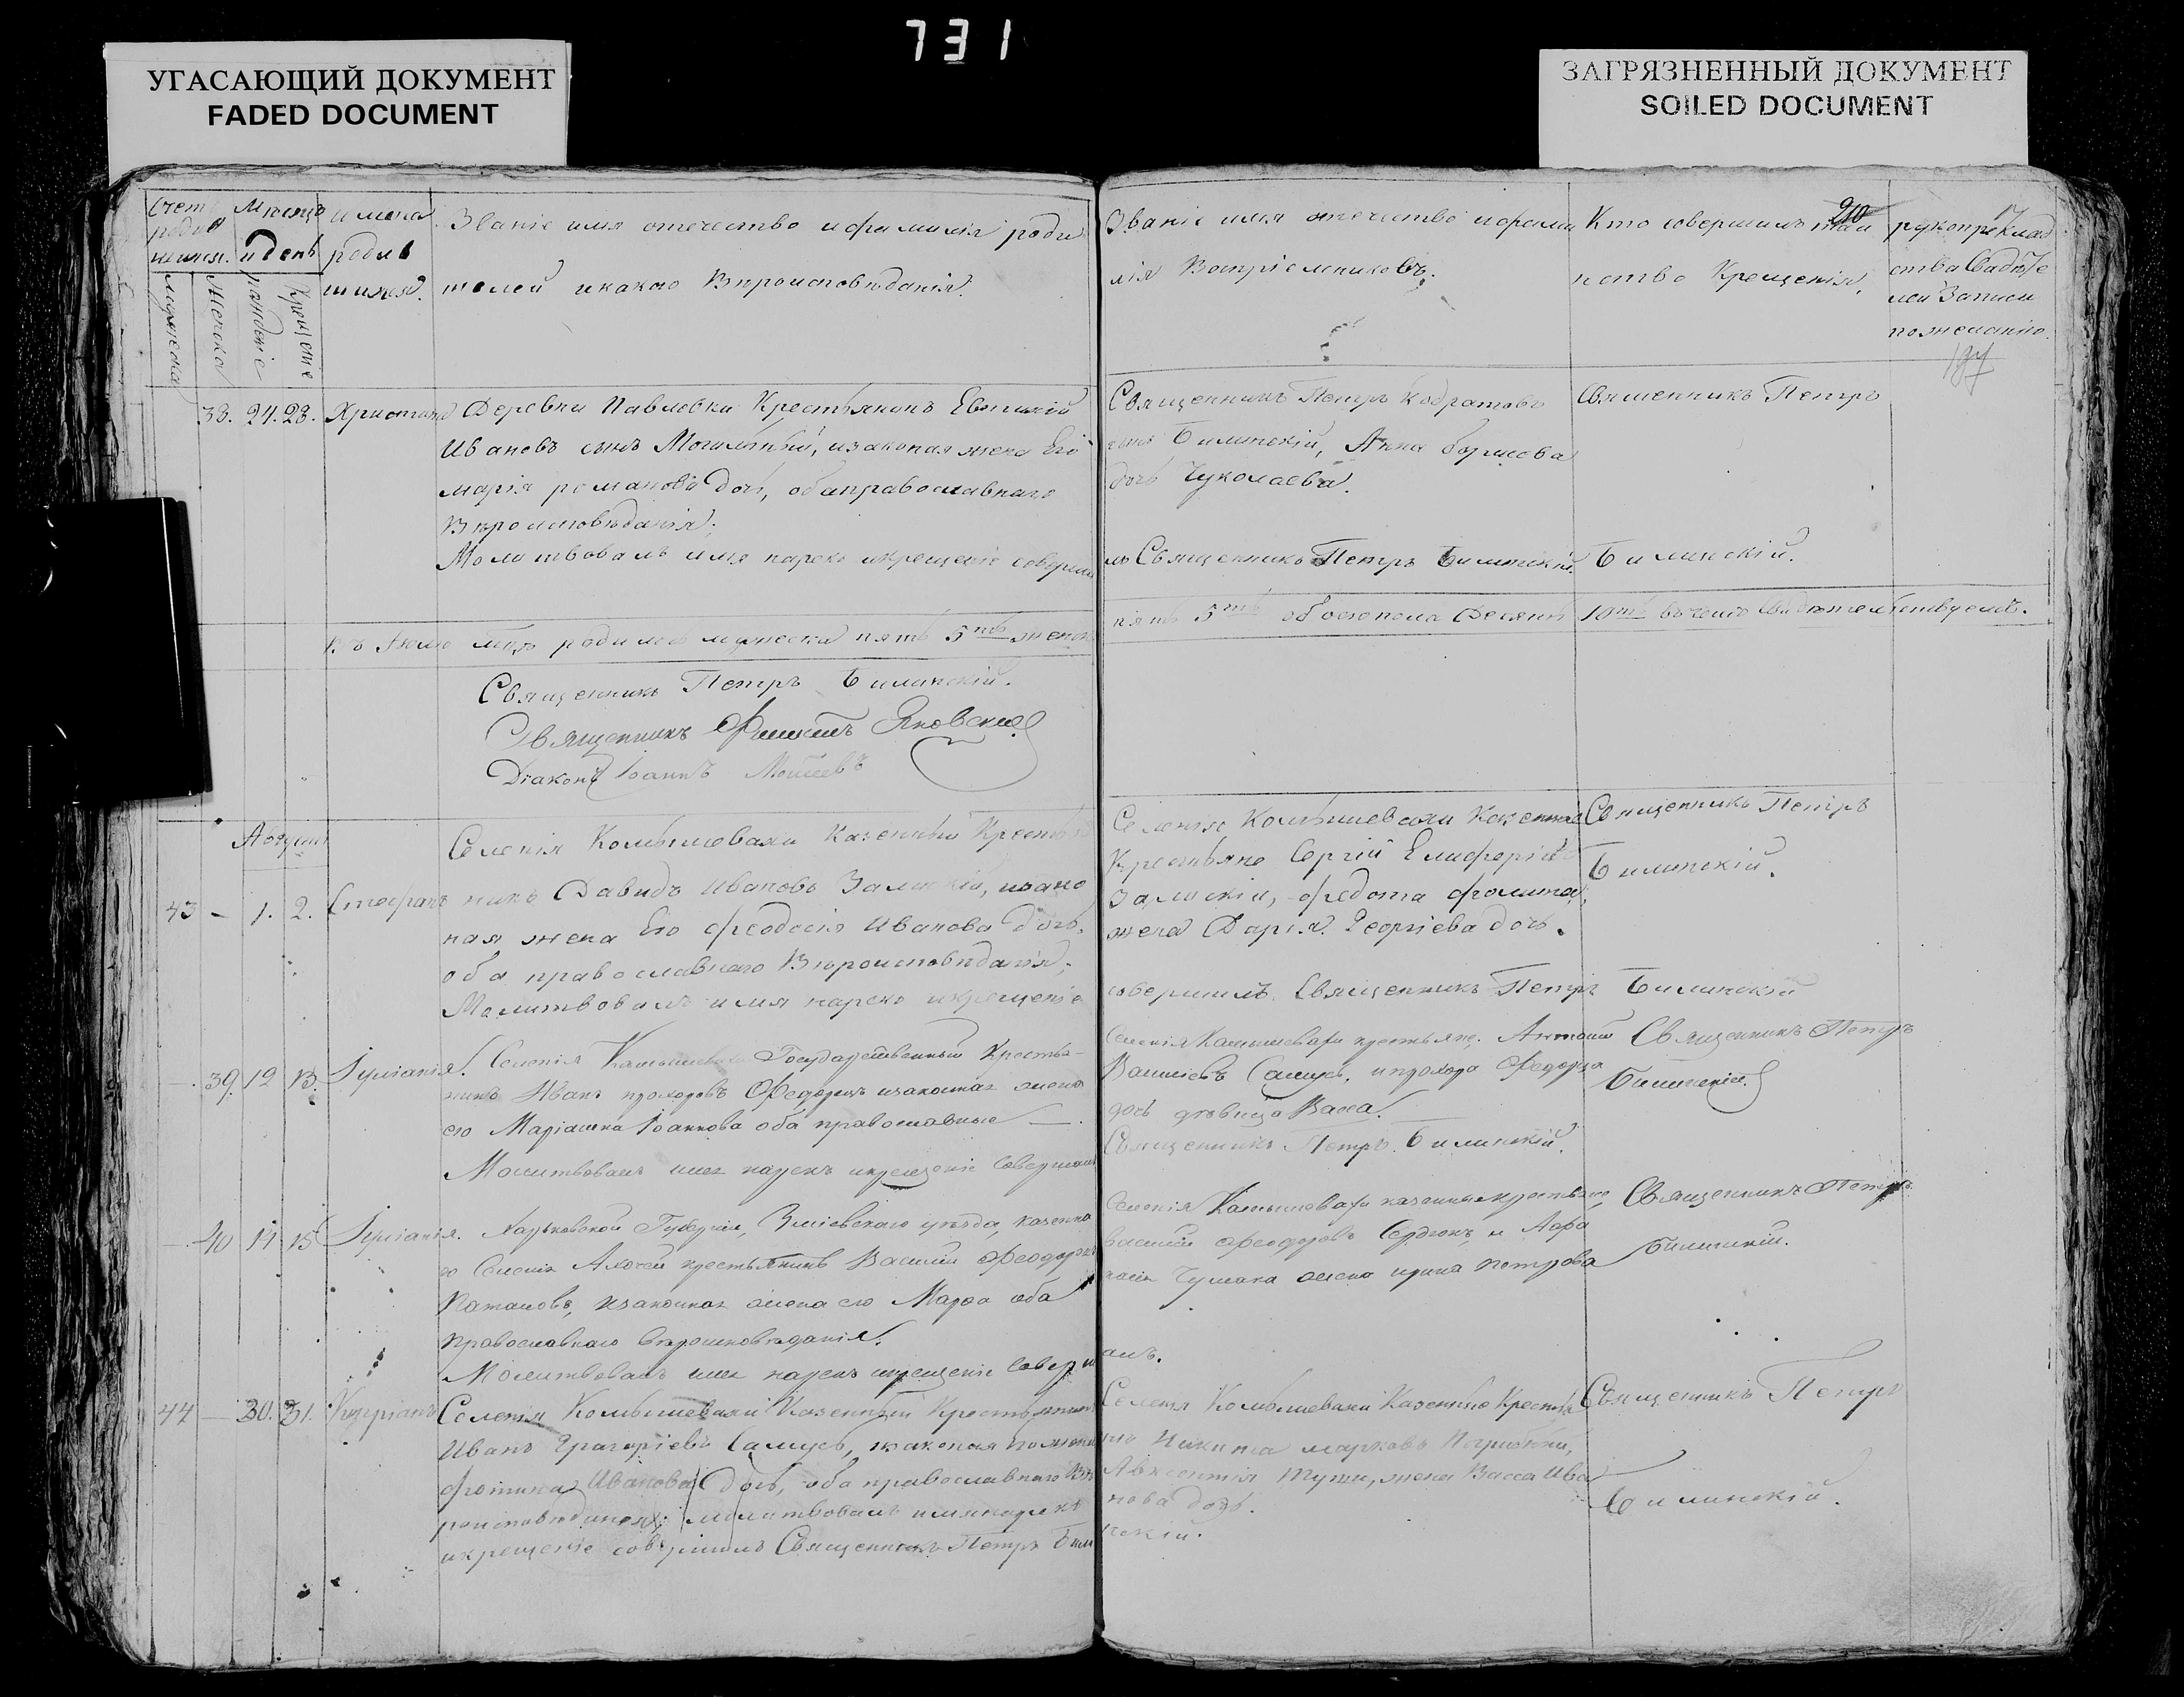 731
УГАСАЮЩИЙ ДОКУМЕНТ
FADED DOCUMENT
ЗАГРЯЗНЕННЫЙ ДОКУМЕНТ
SOILED DOCUMENT
Счет
родив
шихся.
Мѣсяцъ
и день
имена
родив
шихся.
мужеска
женска
рождѣніе
Крещеніе
Званіе имя отечество и фамилія роди
телей и какого Вѣроисповѣданія.
Званіе имя отечество и фами
лія Воспріемниковъ.
Кто совершилъ таи
нство Крещенія.
210
рукопрѣклад
ства Свадѣте
лей записи
по желанію.
38. 24. 28. Христина
Деревни Павловки Крестьянинъ Евтихій
Ивановъ сынъ Могильный, и законая жена Его
марія романова дочь, оба православнаго
Вѣроисповѣданія;
Молитвовалъ имя нареко и крещеніе соверши
Священникъ Петръ Кодратовъ
сынъ Билинскій, Анна борисова
дочь Чуколаева.
лъ Священникъ Петръ Билинскій.
Священникъ Петръ
Билинскій.
Въ Іюлѣ мцѣ родилось мужеска пять 5ть женска
пять 5ть обоегопола Десять 10ть въ чемъ Свидѣтельствуемъ.
Священникъ Петръ Билинскій.
Священникъ Филиппъ Яновскій
Діаконъ Іоаннъ Моисеевъ
Августъ
43 — 1. 2. Стефанъ
Селенія Комышевахи Казенный Крестья
нинъ Давидъ Ивановъ Залискій, изако
ная жена Его феодосія Иванова дочь,
оба православнаго Вѣроисповѣданія;
Молитвовалъ имя нареко и крещеніе
Селенія Комышевахи Казенные
Крестьяне Сергій Елиферіевъ
Залискій, федота фомина,
жена Дарія Георгіева дочь.
совершилъ Священникъ Петръ Билинскій
Священникъ Петръ
Билинскій.
39. 12 13. Іуліанія.
Селенія Камышевахи Государственный Крестья-
нинъ Иванъ прохоровъ Федорецъ изаконная жена
его Маріамна Іоаннова оба православные —
Молитвовалъ имя нарекъ и крещеніе совершилъ
Селенія Камышевахи крестьяне. Антоній
Василіевъ Самусь, и прохора Федорца
дочь дѣвица Васса.
Священникъ Петръ Билинскій.
Священникъ Петръ
Билинскій.
40 14 15 Іуліанія.
Харьковской Губерніи, Зміевскаго уѣзда, казенна
го Селенія крестьянинъ Василій Феодоровъ
изаконная жена его Марфа оба
православнаго вѣроисповѣданія.
Молитвовалъ имя нарекъ и крещеніе соверш
Селенія Камышевахи казенные крестьяне,
василій Феодоровъ Сердюкъ, и Афа
насія Чумака жена ирина петрова
алъ.
Священникъ Петръ
Билинскій.
44 — 30. 31. Кипріанъ
Селенія Комышевахи Казенный Крестьянинъ
Иванъ Григоріевъ Самусь, законая его жена
фотина Иванова дочь, оба православнаго Вѣ
роисповѣданія; молитвовалъ имянареко
икрещеніе совершилъ Священникъ Петръ Били
Селенія Комышевахи Казенные Крестья
не Никита марковъ
Авксентія жена Васса Ива
нова дочь.
нскій.
Священникъ Петръ
Билинскій.